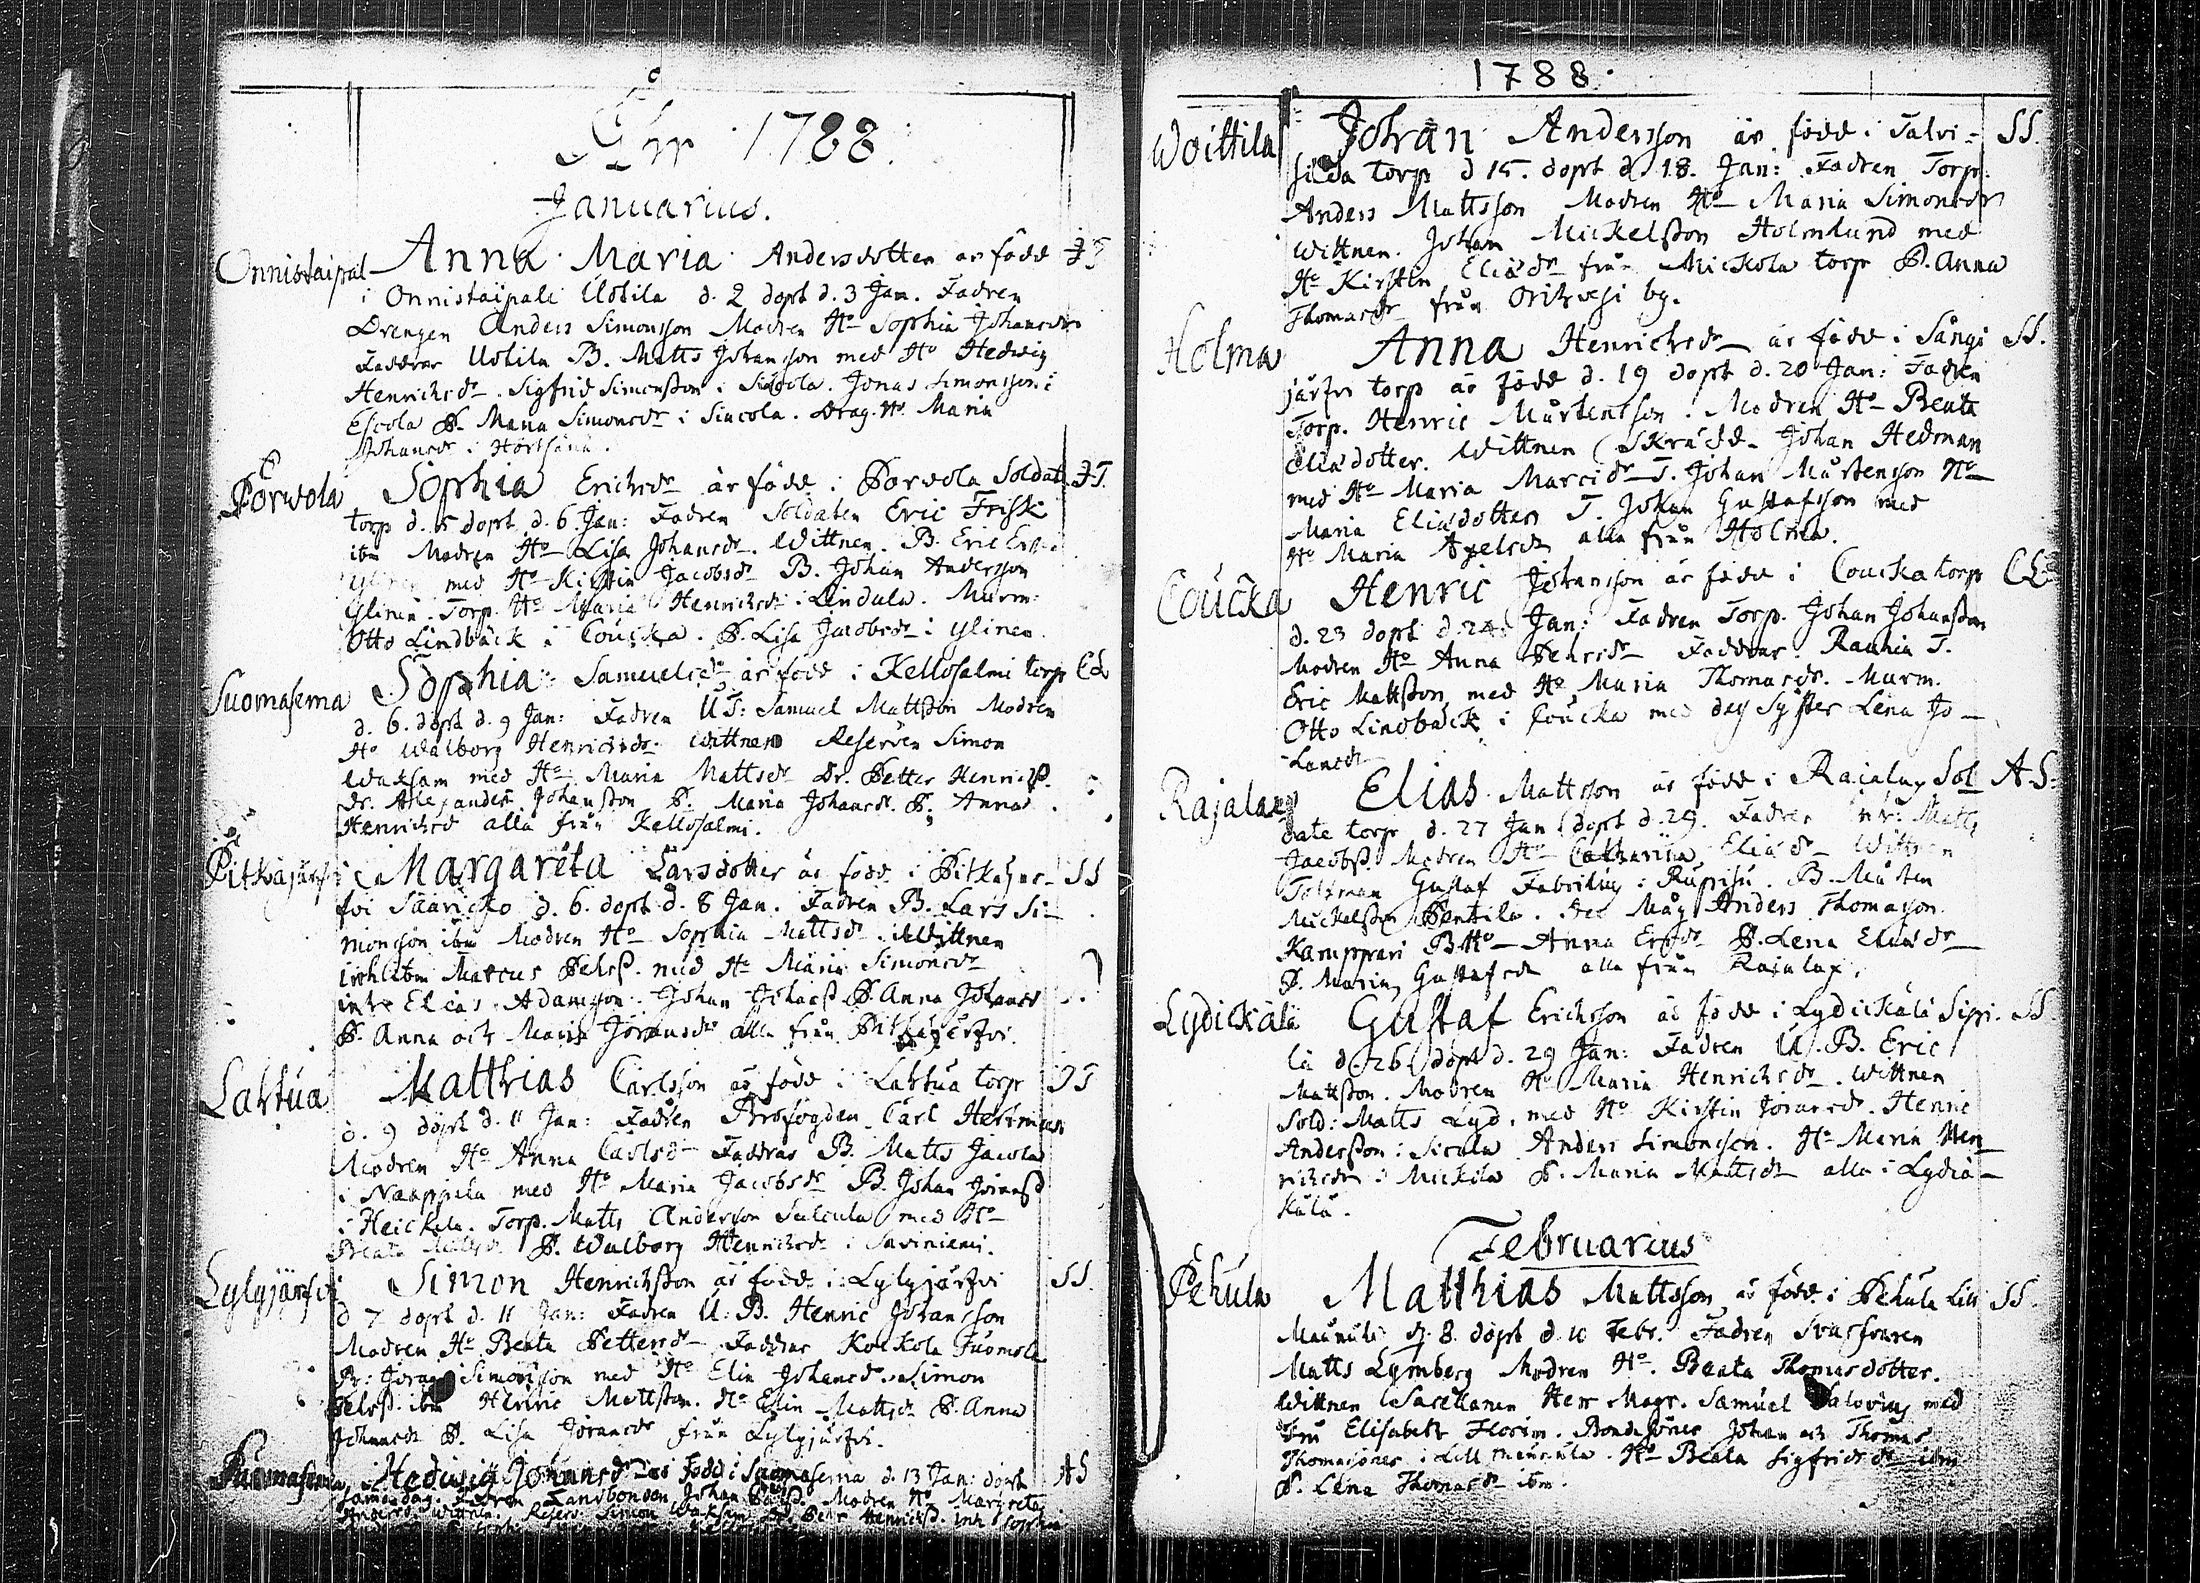 Åhr 1788.
Januarius.
Onnistaipal Anna Maria Andersdotter är född J T
i Onnistaipale Uotila d. 2 döpt d. 3 Jan. Fadren
Drengen Anders Simonsson Modren Ho Sophia Johansdr
Faddrar Uotila B. Matts Johansson med Ho Hedwig
Henrichsdr. Sigfrid Simonsson i Siucola. Jonas Simonsson i
Escola P. Maria Simonsdr i Siucola. Drag. Ho Maria
Johansdr i
Porvola Sophia Erichsdr är född i Porvola Soldat J T.
torp d. 5 döpt d. 6 Jan: Fadren Soldaten Eric Frisk
ibm Modren Ho Lisa Johansdr. Wittnen. B. Eric
med Ho Kirstin Jacobsdr B. Johan Andersson
Ylinen. Torp. Ho Maria Henrichsdr i Lindula. Murm.
Otto Lindbäck i Coucka. P. Lisa Jacobsdr i Ylinen.
Suomasema Sophia Samuelsdr är född i Kellosalmi torp CL
d. 6. döpt d. 9 Jan: Fadren U T: Samuel Mattsson Modren
Ho Walborg Henrichsdr. Wittnen Reserven Simon
Waksam med Ho Maria Mattsdr Dr. Petter Henricss.
dr. Alexander Johansson P. Maria Johansdr. P. Anna
Henrichsd alla från Kellosalmi.
Pitkäjärfvi Margareta Larsdotter är född i Pitkäjär- SS
fvi Säärickö d. 6. döpt d. 8 Jan. Fadren B. Lars Si-
monsson ibm Modren Ho Sophia Mattsdr. Wittnen
Marcus Pehrss. med Ho Maria Simonsdr
Elias Adamsson. Johan Johanss P. Anna Johansd
P. Anna och Maria Jöransdr alla från Pitkäjerfvi.
Lahtua Matthias Carlsson är född i Lahtua torp J T
d. 9 döpt d. 11 Jan: Fadren Brofogden Carl
Modren Ho Anna Carlsd Faddrar B. Matts Jacola
i Naappila med Ho Maria Jacobsdr B. Johan Jöranss
i Heickela. Torp. Matts Andersson Salcula med Ho
Beata P. Walborg Henrichsdr i Saviniemi.
Lylyjärfvi Simon Henrichsson är född i Lylyjärfvi SS.
d 7 döpt d. 11 Jan: Fadren U. B. Henric Johansson
Modren Ho Beata Pettersdr Faddrar Kockola Tuomola
B: Jöran Simonsson med Ho Elin Johansd. Simon
Pehrss. ibm Henric Mattsson. Ho Elin Mattsdr P. Anna
Johansdr P. Lisa Jöransdr från Lylyjärfvi.
Suomasema Hedwig Johansdr är född i Suomasema d. 13 Jan: döpt AS
samma dag. Fadren Landbonden Johan Modren Ho Margreta
Wittnen. Reserv. Simon Waksam Dr. Pehr Henrichss. Inh Sophia
1788.
Woittila Johan Andersson är född i Talvi- SS.
torp d 15. döpt d. 18. Jan: Fadren Torp.
Anders Mattsson Modren Ho Maria Simonsdr
Wittnen. Johan Mickelsson Holmlund med
Ho Kirstin Eliædr från Mickola torp P. Anna
Thomasdr från Orihvesi by.
Holma Anna Henrichsdr är född i Sångi SS.
järfvi torp är född d. 19 döpt d. 20 Jan: Fadren
Torp. Henric Mårtensson. Modren Ho Beata
Eliædotter. Wittnen Skrädd. Johan Hedman
med Ho Maria Marcidr T. Johan Mårtensson Ho
Maria Eliædotter T. Johan Gustafsson med
Ho Maria Axelsdr alla från Holma.
Coucka Henric Johansson är född i Coucka torp CL
d. 23 döpt d. 24 Jan: Fadren Torp. Johan Johansson
Modren Ho Anna Pehrsdr Faddrar. Rauhia T.
Eric Mattsson med Ho Maria Thomasdr. Murm.
Otto Lindbäck i Coucka med des Syster Lena Jo-
hansdr
Rajalax Elias Mattsson är född i Rajalax Sol A S.
date torp d. 27 Jan döpt d. 29. Fadren Matts
Jacobss. Modren Ho Catharina Eliædr Wittnen
Gustaf Fabritius i Ruprisu. B. Mårten
Mickelsson Pentila. Måg Anders Thomasson
Kamppari B Ho Anna P. Lena Eliædr
P. Maria Gustafsdr alla från Rajalax.
Lydickälä Gustaf Ericksson är född i Lydickälä Sipi- SS.
lä d. 26 döpt d. 29 Jan: Fadren U. B. Eric
Mattsson. Modren Ho Maria Henrichsdr. Wittnen
Sold: Matts Lyd. med Ho Kirstin Jöransdr. Henric
Andersson i Sicula Anders Simonsson. Ho Maria Hen
richsdr i Mickila P. Maria Mattsdr alla i Lydic-
kälä.
Februarius
Pehula Matthias Mattsson är född i Pehula Lill SS.
Maunula d. 8. döpt d. 10 Febr. Fadren Svarfvaren
Matts Lymberg Modren Ho. Beata Thomasdotter.
Wittnen Sacellanen Herr Magr. Samuel Salovius med
Fru Elisabeth Florin. Bondesöner Johan och Thomas
Thomæsöner i Lill Maunula. Ho Beata Sigfridsdr ibm
P. Lena Thomasdr ibm.